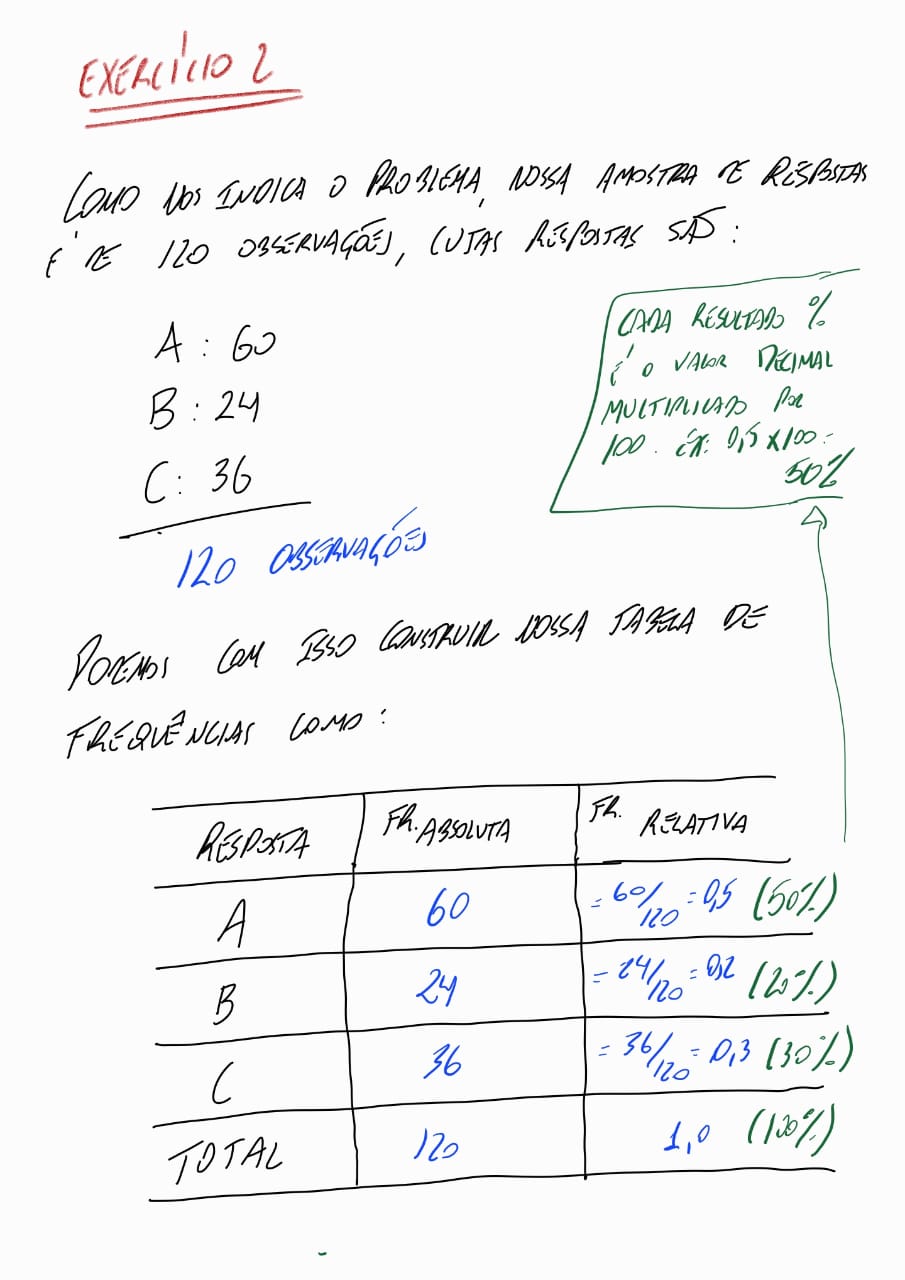 EXERCÍCIO 2
COMO NOS INDICA O PROBLEMA, NOSSA AMOSTRA DE RESPOSTAS
É DE 120 OBSERVAÇÕES, CUJAS RESPOSTAS SÃO:
A : 60
B : 24
C : 36
120 OBSERVAÇÕES
CADA RESULTADO %
É O VALOR DECIMAL
MULTIPLICADO POR
100. EX: 0,5 X 100 =
50%
PODEMOS COM ISSO CONSTRUIR NOSSA TABELA DE
FREQUÊNCIAS COMO:
RESPOSTA FR. ABSOLUTA FR. RELATIVA
A 60 = 60/120 = 0,5 (50%)
B 24 = 24/120 = 0,2 (20%)
C 36 = 36/120 = 0,3 (30%)
TOTAL 120 1,0 (100%)